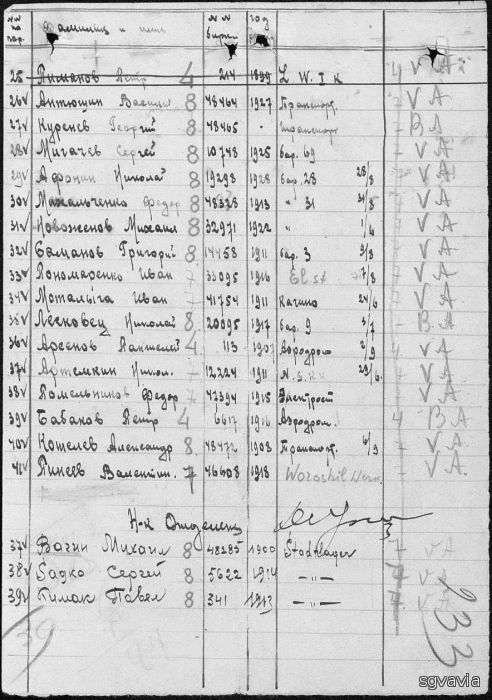 NN по пор. Фамилия и имя NN биржи год
25 Пиманов Петр 4 214 1899 L. W. I K 4 V A
26 V Антюшин Василий 8 48464 1927 Транспорт. V A
27 V Куренев Георгий 8 48465 " транспорт B A
28 V Мигачев Сергей 8 10748 1925 бар. 69 V A
29 V Афонин Николай 8 19298 1928 бар. 28 28/8 V A
30 V Михальченко Федор 8 48328 1913 " 31 31/8 V A
31 V Новоженов Михаил 8 32971 1922 " 1/4 V A
32 V Саманов Григорий 8 14458 1911 бар. 3 9/8 V A
33 V Пономаренко Иван 7 33095 1916 El st 7/8 V A
34 V Моталыга Иван 7 41754 1911 Качино 24/6 V A
35 V Лесковец Николай 8 20095 1917 бар. 9 3/7 B A
36 V Арсенов Пантелей 4 113 1907 Аэродром 2/9 4 V A
37 V Артемкин Никол. 12224 1911 29/6 V A
38 V Помельников Федор 7 47394 1915 Электрост V A
39 V Бабаков Петр 4 6617 1916 Аэродром. 4 B A
40 V Котелев Александр 8 48472 1908 Транспорт. 6/9 V A
41 V Пинеев Валентин. 7 46608 1918 Woroshil V A
Н-к Отделенец
37 V Вагин Михаил 8 48285 1900 Stadtlager 7 V A
38 V Бадко Сергей 8 5622 1914 — " — 7 V A
39 V Тимак Павел 8 341 1913 — " — 7 V A
39
233
sgvavia